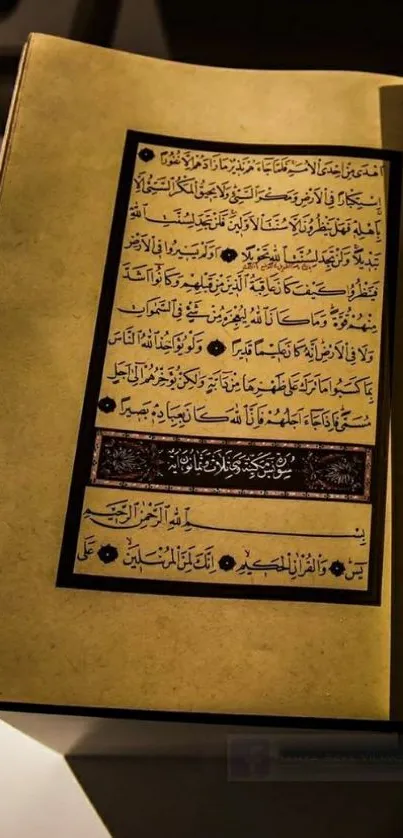 اهدى من احدى الامم فلما جاءهم نذير ما زادهم الا نفورا
استكبارا في الارض ومكر السيئ ولا يحيق المكر السيئ الا
باهله فهل ينظرون الا سنت الاولين فلن تجد لسنت الله
تبديلا ولن تجد لسنت الله تحويلا اولم يسيروا في الارض
فينظروا كيف كان عاقبة الذين من قبلهم وكانوا اشد
منهم قوة وما كان الله ليعجزه من شيء في السموات
ولا في الارض انه كان عليما قديرا ولو يؤاخذ الله الناس
بما كسبوا ما ترك على ظهرها من دابة ولكن يؤخرهم الى اجل
مسمى فاذا جاء اجلهم فان الله كان بعباده بصيرا
سورة يس مكية وهي ثلاث وثمانون اية
بسم الله الرحمن الرحيم
يس والقران الحكيم انك لمن المرسلين على